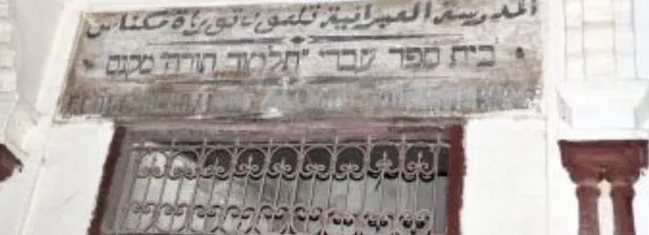 المدرسة العبرانية تلمود توراة مكناس
בית ספר עברי "תלמוד תורה" מקנס